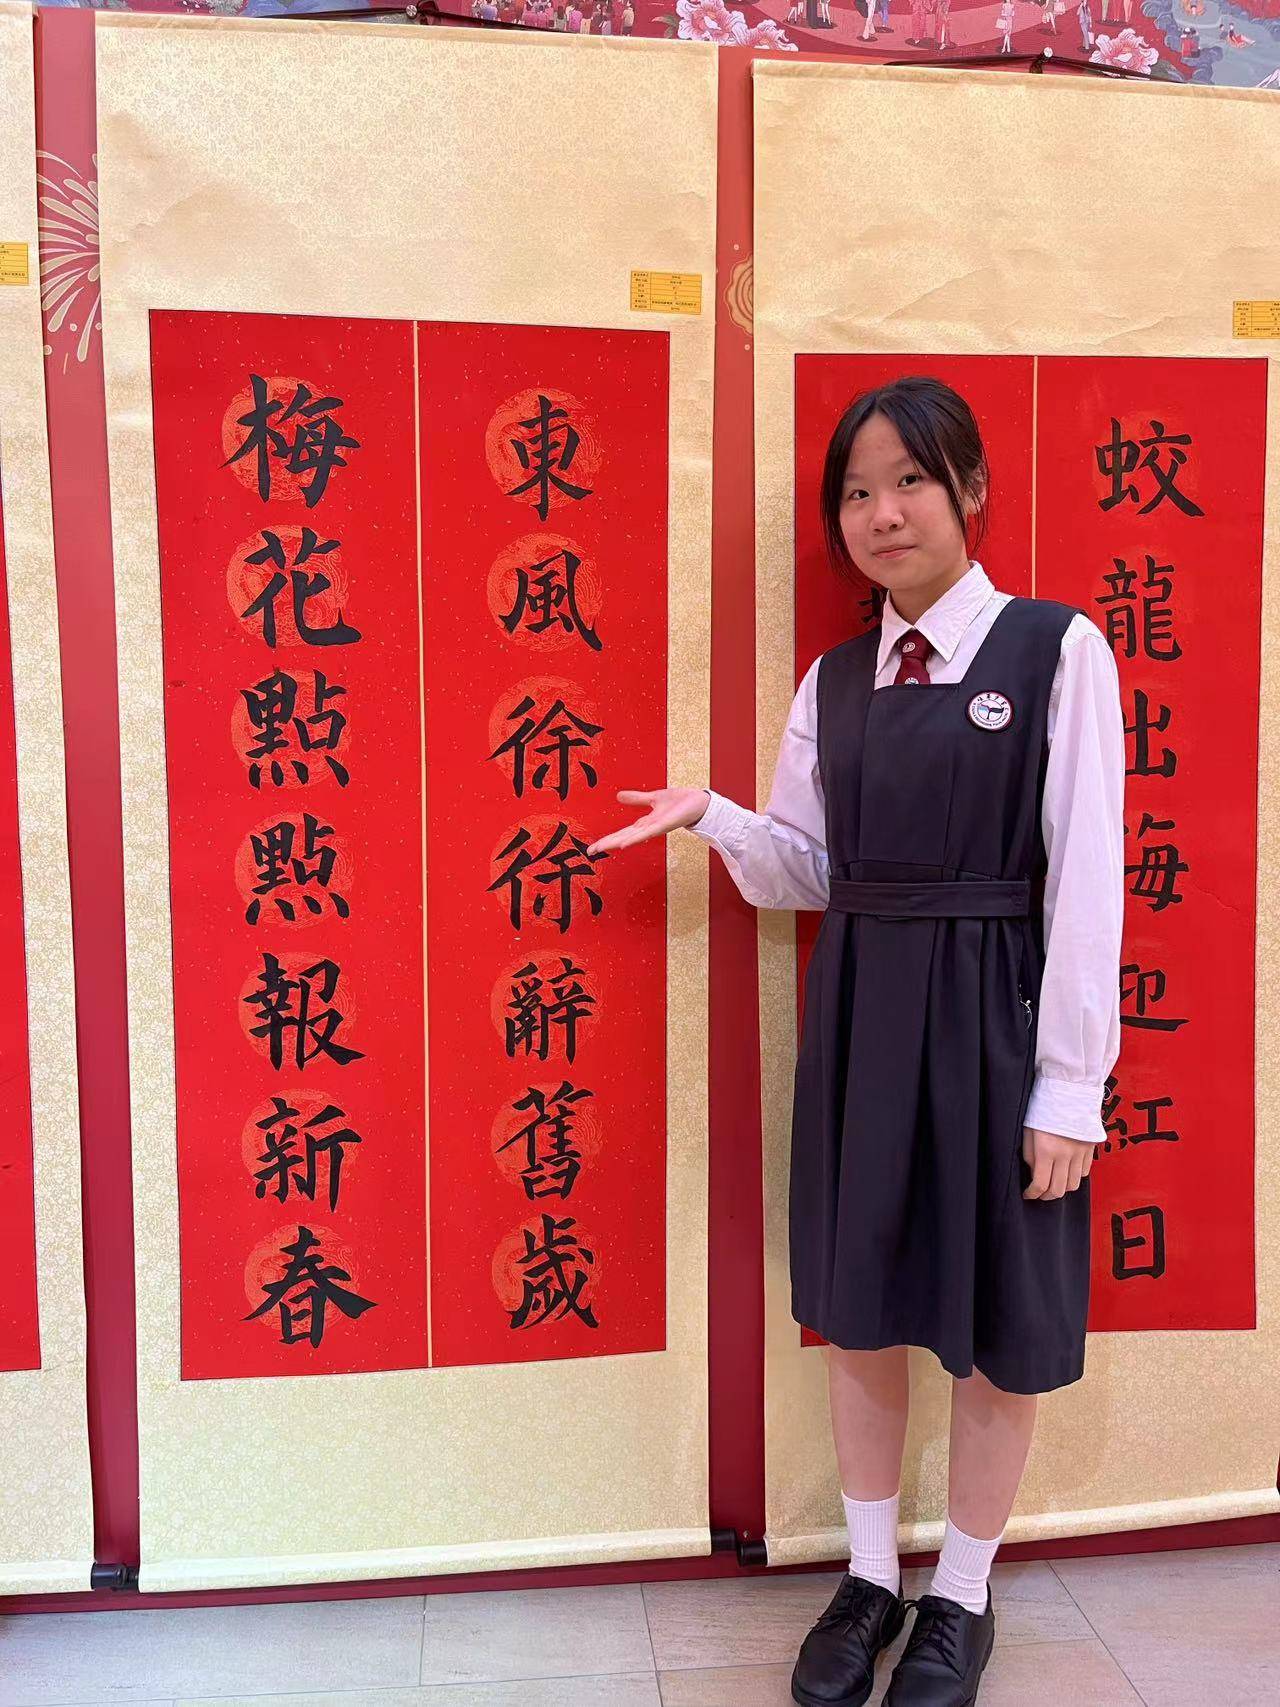 東風徐徐辭舊歲
梅花點點報新春
蛟龍出海迎紅日